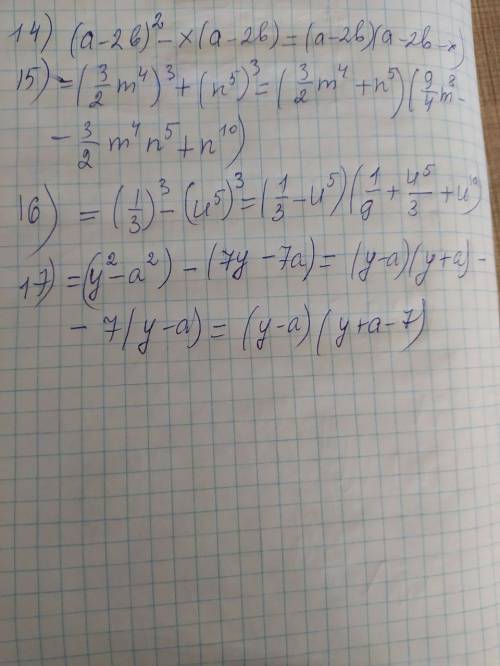 14) (a-2b)² - x(a-2b) = (a-2b)(a-2b-x)
15) = (3/2 m⁴)³ + (n⁵)³ = (3/2 m⁴ + n⁵)(9/4 m⁸ -
- 3/2 m⁴ n⁵ + n¹⁰)
16) = (1/3)³ - (u⁵)³ = (1/3 - u⁵)(1/9 + u⁵/3 + u¹⁰)
17) = (y² - a²) - (7y - 7a) = (y-a)(y+a) -
- 7(y-a) = (y-a)(y+a-7)